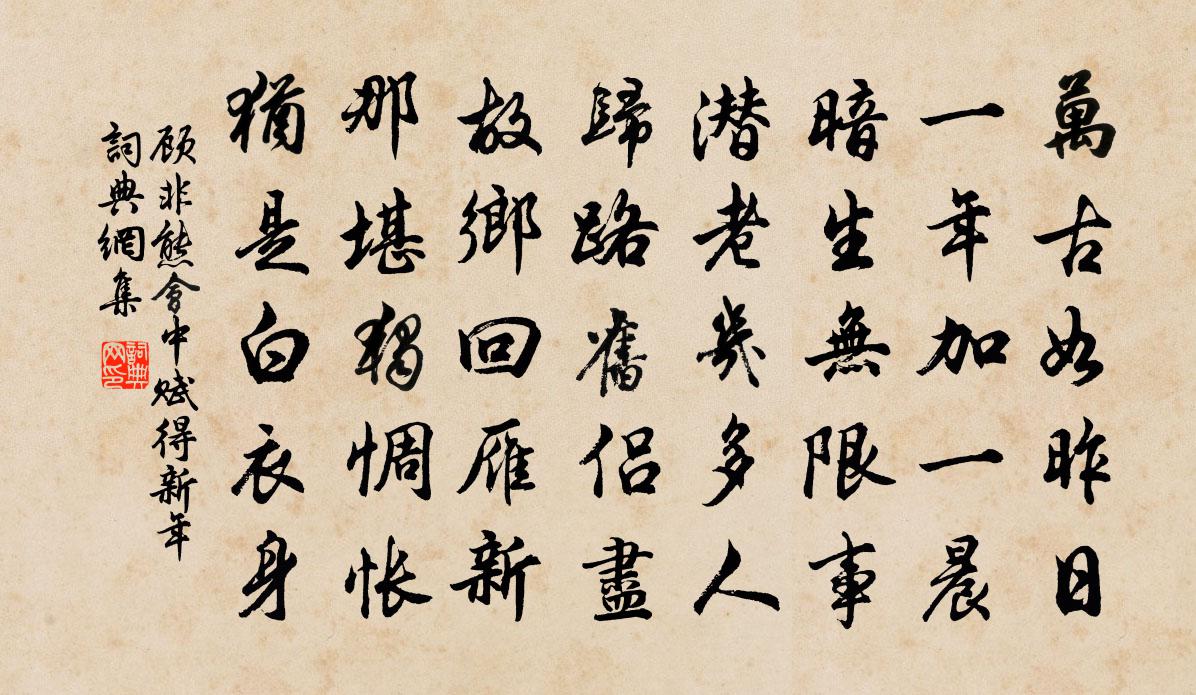 萬古如昨日
一年加一晨
暗生無限事
潛老幾多人
歸路舊侶盡
故鄉回雁新
那堪獨惆悵
猶是白衣身
顾非熊會中賦得新年
詞典網集
詞典
网印